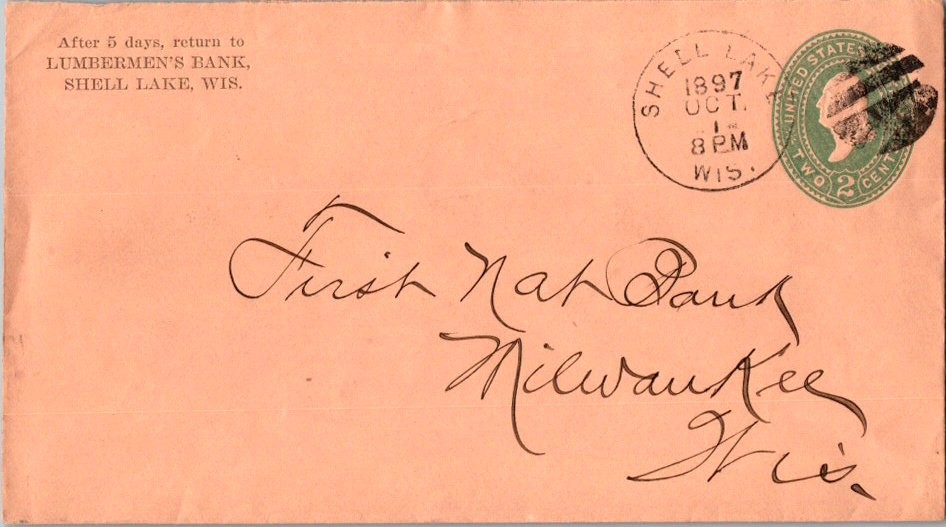 After 5 days, return to
LUMBERMEN'S BANK,
SHELL LAKE, WIS.
SHELL LAKE
1897
OCT.
1
8 PM
WIS.
UNITED STATES
TWO 2 CENTS
First Nat Bank
Milwaukee
Wis.